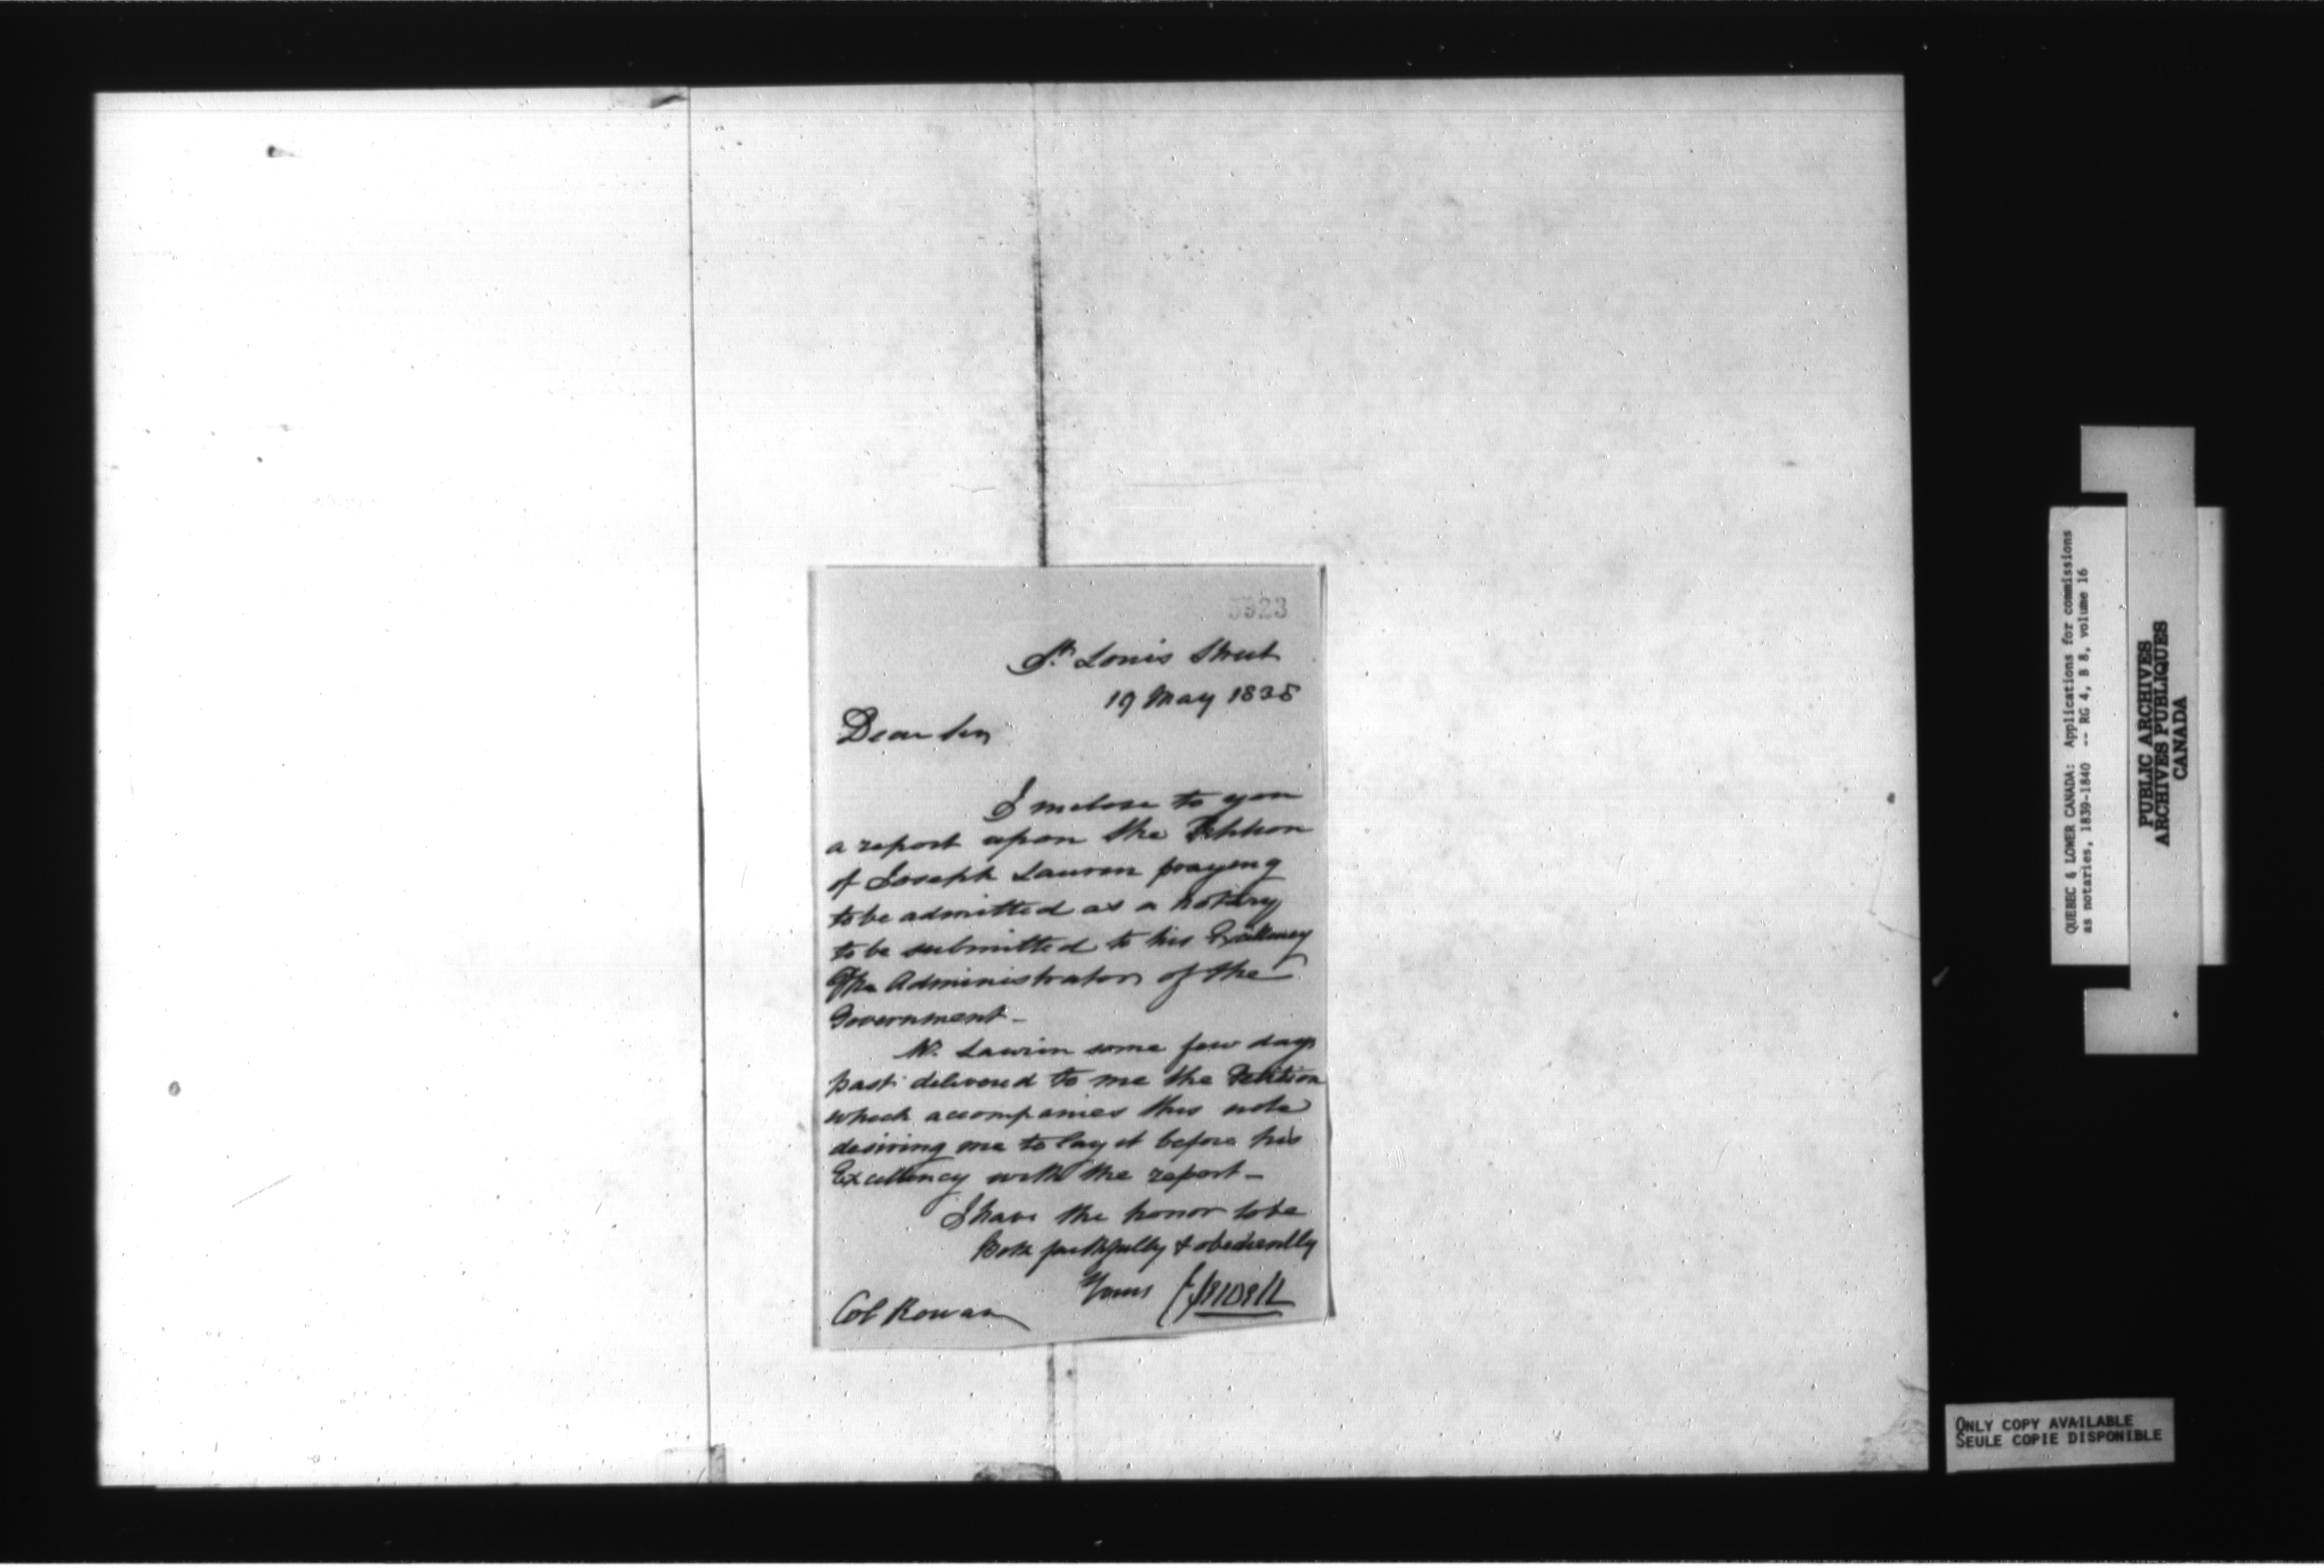 5923
St. Louis Street
19 May 1838
Dear Sir,
I inclose to you
a report upon the Petition
of Joseph Laurin praying
to be admitted as a notary
to be submitted to his Excellency
The Administrator of the
Government -
Mr. Laurin some few days
past delivered to me the Petition
which accompanies this note
desiring me to lay it before his
Excellency with the report -
I have the honor to be
faithfully & obediently
Yours
Col Rowan
QUEBEC & LOWER CANADA: Applications for commissions
as notaries, 1839-1840 -- RG 4, B 8, volume 16
PUBLIC ARCHIVES
ARCHIVES PUBLIQUES
CANADA
ONLY COPY AVAILABLE
SEULE COPIE DISPONIBLE